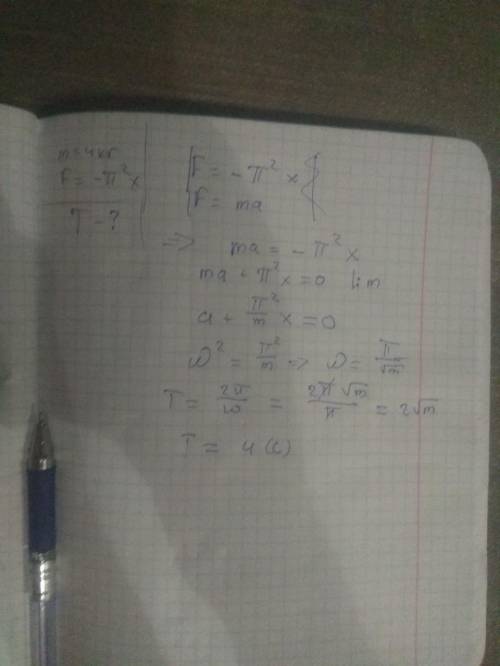 m = 4 кг
F = -π² x
T - ?
F = -π² x
F = ma
=> ma = -π² x
ma + π² x = 0 |:m
a + π²/m x = 0
ω² = π²/m => ω = π/√m
T = 2π/ω = 2π√m/π = 2√m
T = 4 (с)